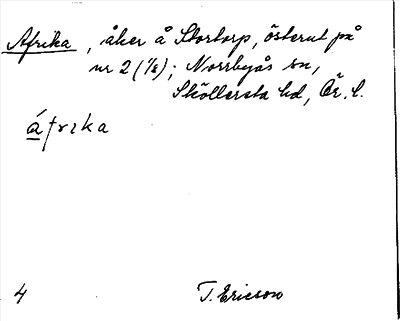 Afrika, åker å Stortorp, österut på
nr 2 (1/8); Norrbyås sn,
Sköllersta hd, Ör. l.
áfrika
4 T. Ericson